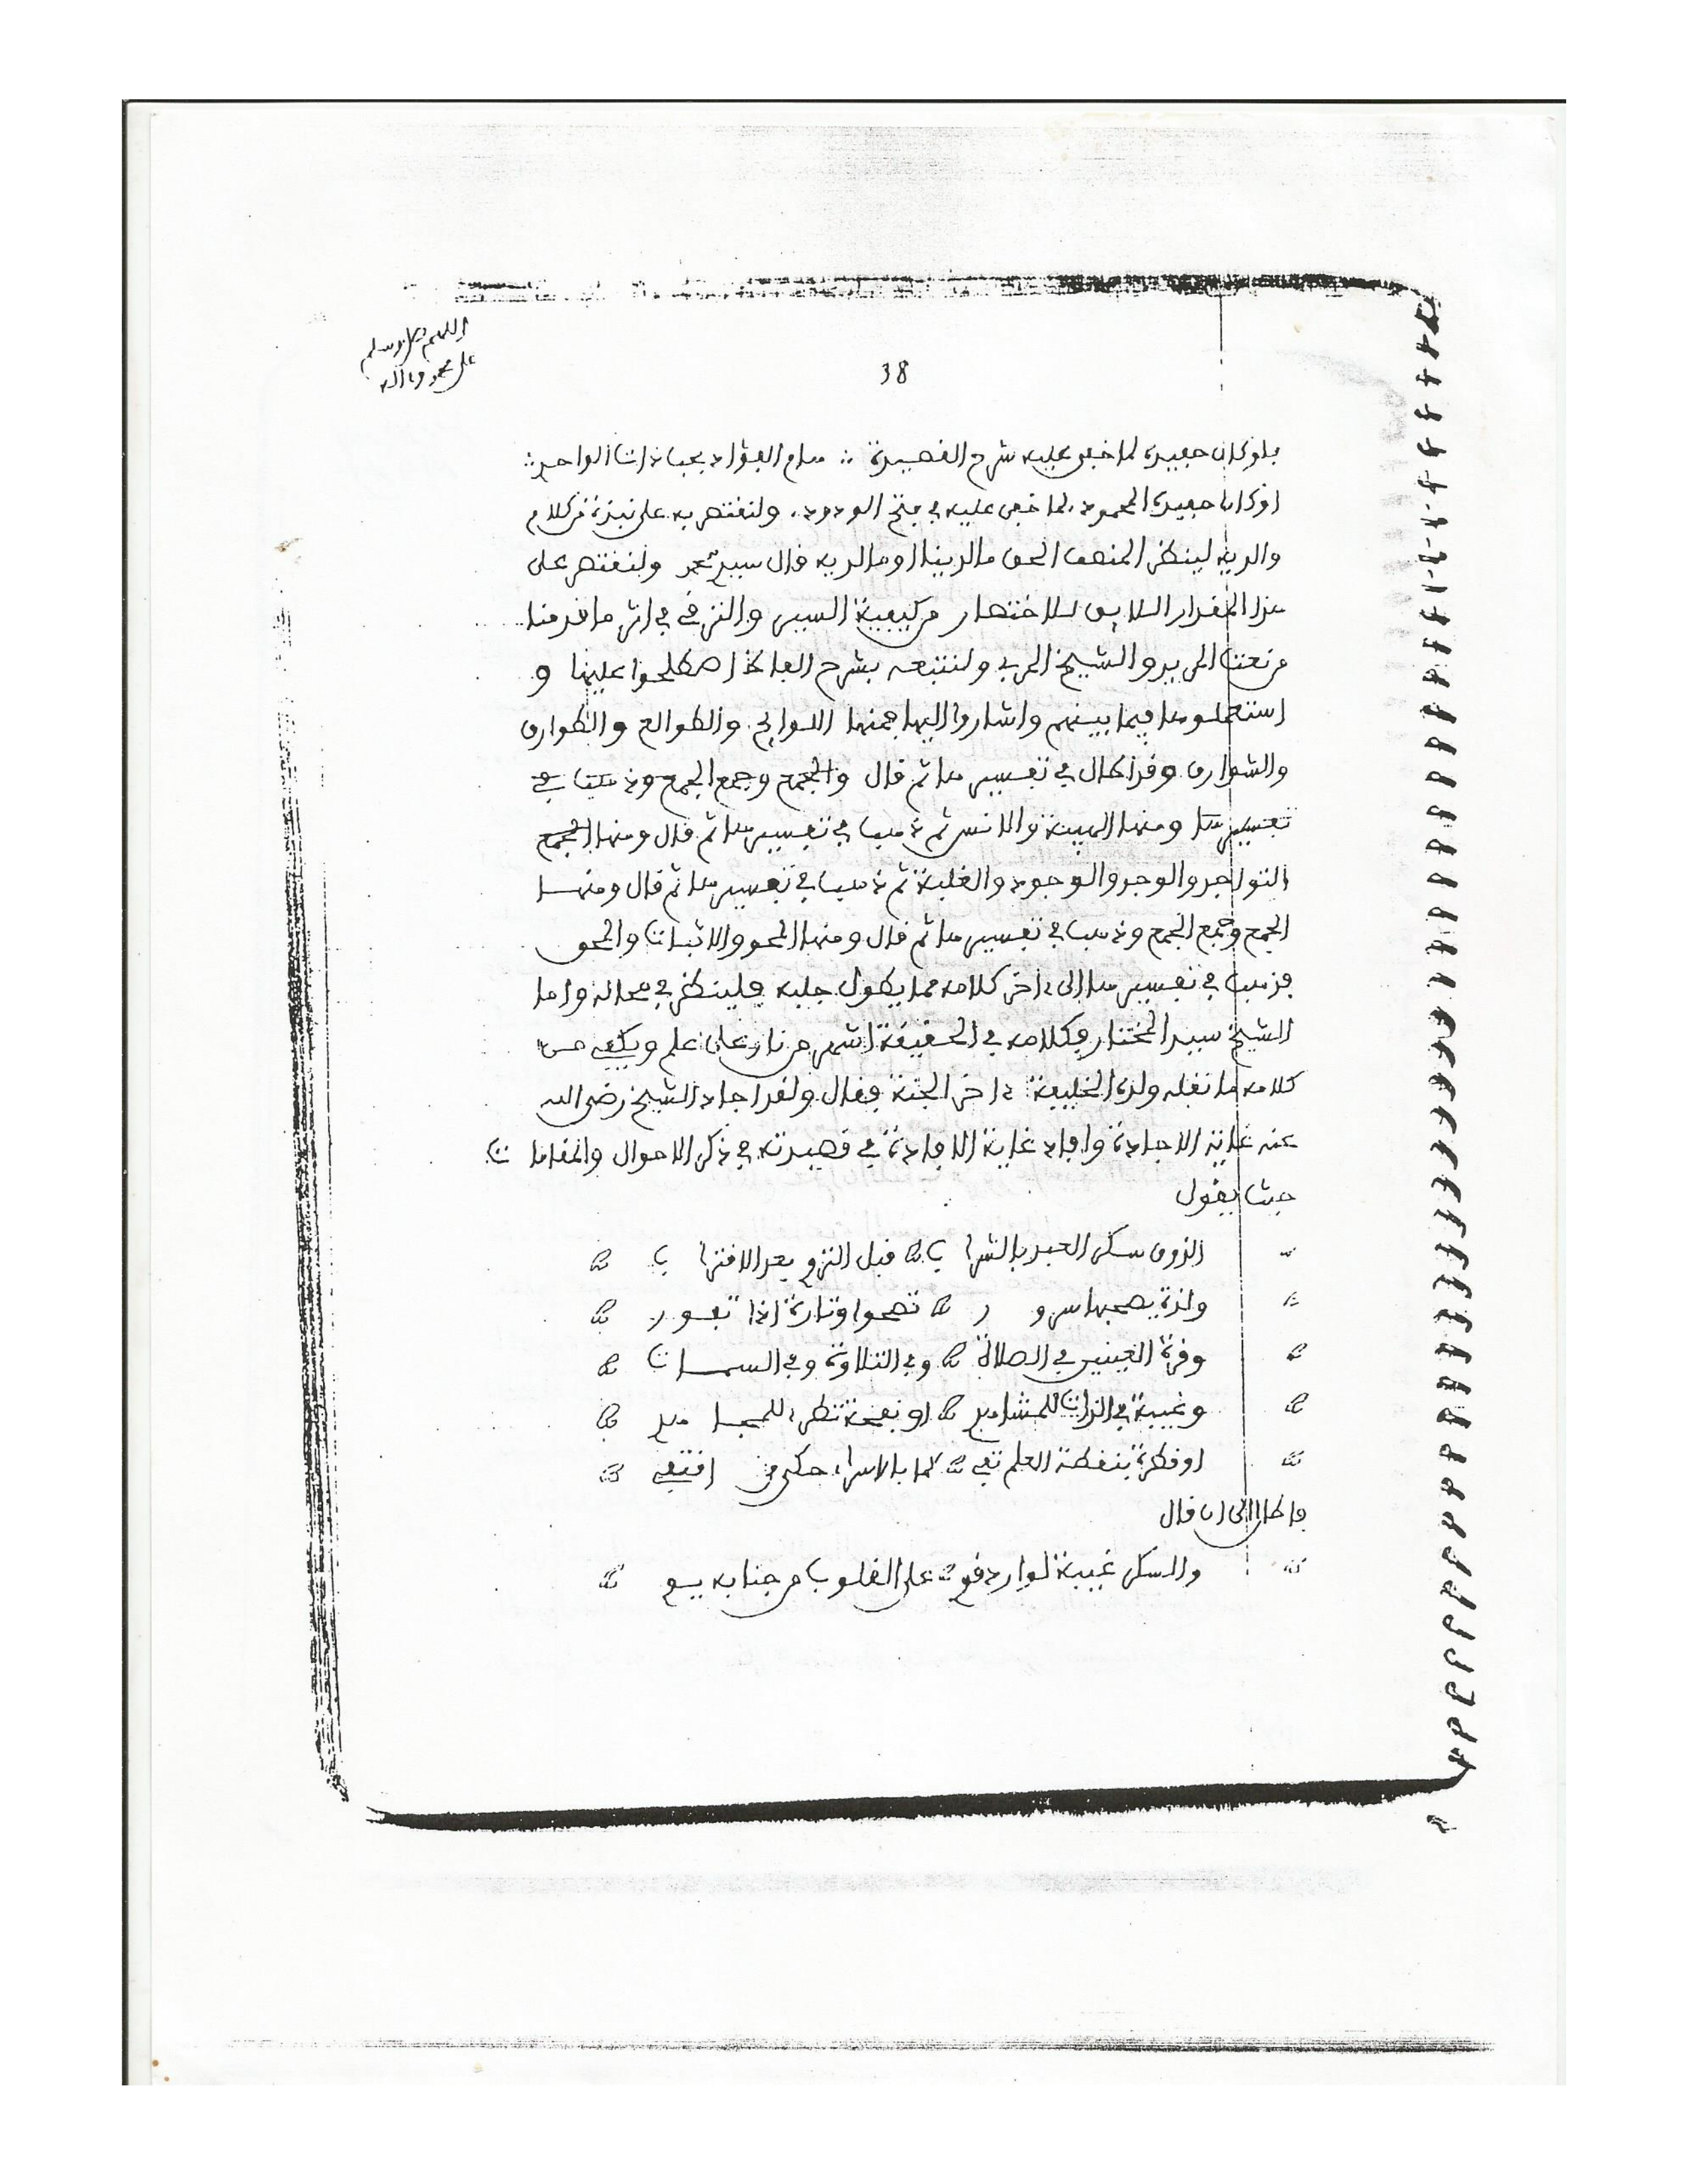 اللهم صل وسلم
على محمد وءاله
38
فلو كان حفيده لما خفي عليه شرح القصيدة ∴ هام الفؤاد بحب ذات الواحد ∴
او كان حفيده المحمود لما خفي عليه فتح الودود، ولنقتصر به على نبذة من كلام
والديه لينظر المنصف الحق ما لدينا او ما لديه قال سيد محمد ولنقتصر على
هذا المقدار اللايق للاختصار من كيفية السير والترقي في اثر ما قدمنا
من نعت المريد والشيخ المربي ولنتبعه بشرح الفاظ اصطلحوا عليها و
استعملوها فيما بينهم واشاروا اليها فمنها اللوايح والطوالع والطوارق
والشوارق وقد اطال في تفسيرها ثم قال والجمع وجمع الجمع وذهب في
تفسيرها ومنها الهيبة والانس ثم ذهب في تفسيرها ثم قال ومنها الجمع
التواجد والوجد والوجود والغلبة ثم ذهب في تفسيرها ثم قال ومنها
الجمع وجمع الجمع وذهب في تفسيرها ثم قال ومنها المحو والاثبات والمحو
فذهب في تفسيرها الى ءاخر كلامه مما يطول جلبه فلينظر في محاله واما
الشيخ سيد المختار فكلامه في الحقيقة اشهر من نار على علم ويكفي من
كلامه ما نقله ولده الخليفة ءاخر الجنة فقال ولقد اجاد الشيخ رضي الله
عنه غاية الاجادة وافاد غاية الافادة في قصيدته في ذكر الاحوال والمقامات
حيث يقول
الذوق سكر العبد بالشراب قبل التزو بعد الاقتراب
ولذة يصحبها سرور تصحوا وتارة اذا تفور
وقرة العينين في الصلاة وفي التلاوة وفي السمات
وغيبة في الذات للمشاهد او نفحة تطرء للمجاهد
او فكرة بنقطة العلم تفي كما بالاسراء حكى من اقتفى
فاطال الى ان قال
والسكر غيبة لوارد قوي على القلوب من جنابه